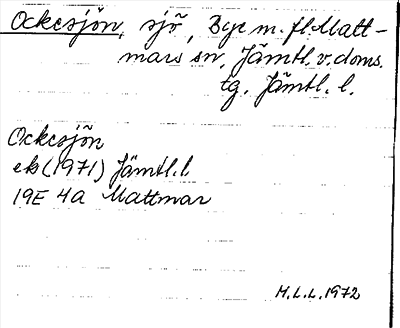 Ockesjön, sjö, Bye m. fl. Matt-
mars sn, Jämtl. v. doms.
tg. Jämtl. l.
Ockesjön
ek (1971) Jämtl. l
19E 4a Mattmar
H.L.L. 1972